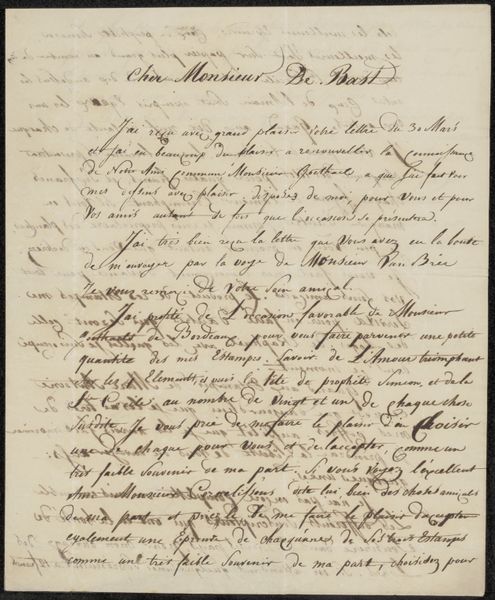 Cher Monsieur De Bast
J'ai reçu avec grand plaisir votre lettre du 30 Mars
et j'ai eu beaucoup du plaisir a renouveller la
de Notre Ami Commun Monsieur Goethals, a que j'ai fait voir
mes avec plaisir, disposez de moi, pour Vous et pour
Vos amis autant de fois que l'occasion se presentera.
J'ai très bien reçu la lettre que Vous avez eu la bonté
de m'envoyer par la voye de Monsieur Van Brée
Je vous remercie de Votre Soin amical.
J'ai profité de l'occasion favorable de Monsieur
de Bordeaux, pour vous faire parvenir une petite
quantité des mes Estampes. Savoir de l'Amour triomphant
les Elements, et puis la tête de prophète Simeon, et de la
au nombre de Vingt et un de chaque chose
Susdite. Je vous prie de me faire le plaisir d'en Choisir
une de chaque pour Vous et de l'accepter comme un
très faible Souvenir de ma part. Si vous Voyez l'excellent
Ami Monsieur Cornelissen dite lui bien des choses amicales
de ma part et priez le de me faire le plaisir d'accepter
egalement une épreuve de chacquune de Ses trois Estampes
comme un très faible Souvenir de ma part, choisidez pour